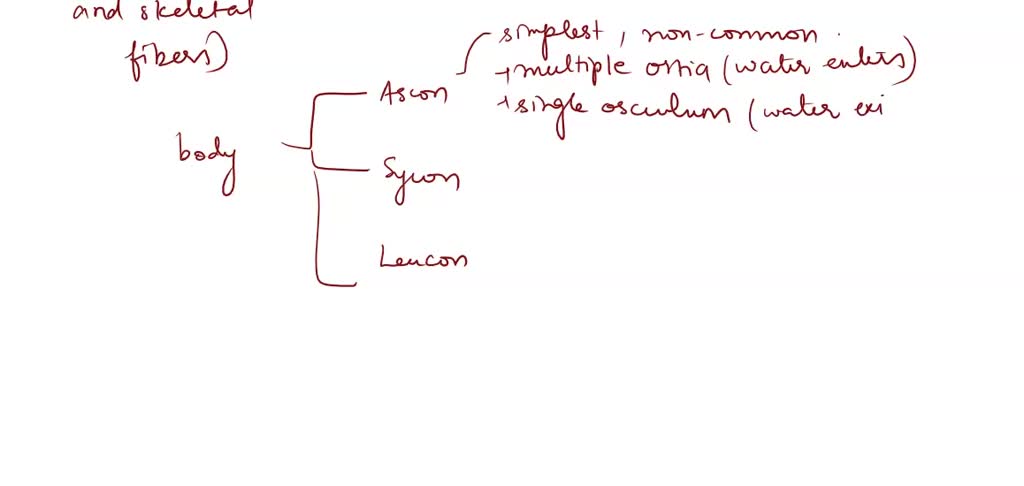 and skeletal
fibers)
simplest, non-common.
+ multiple ostia (water enters)
Ascon
+ single osculum (water exi
body
Sycon
Leucon